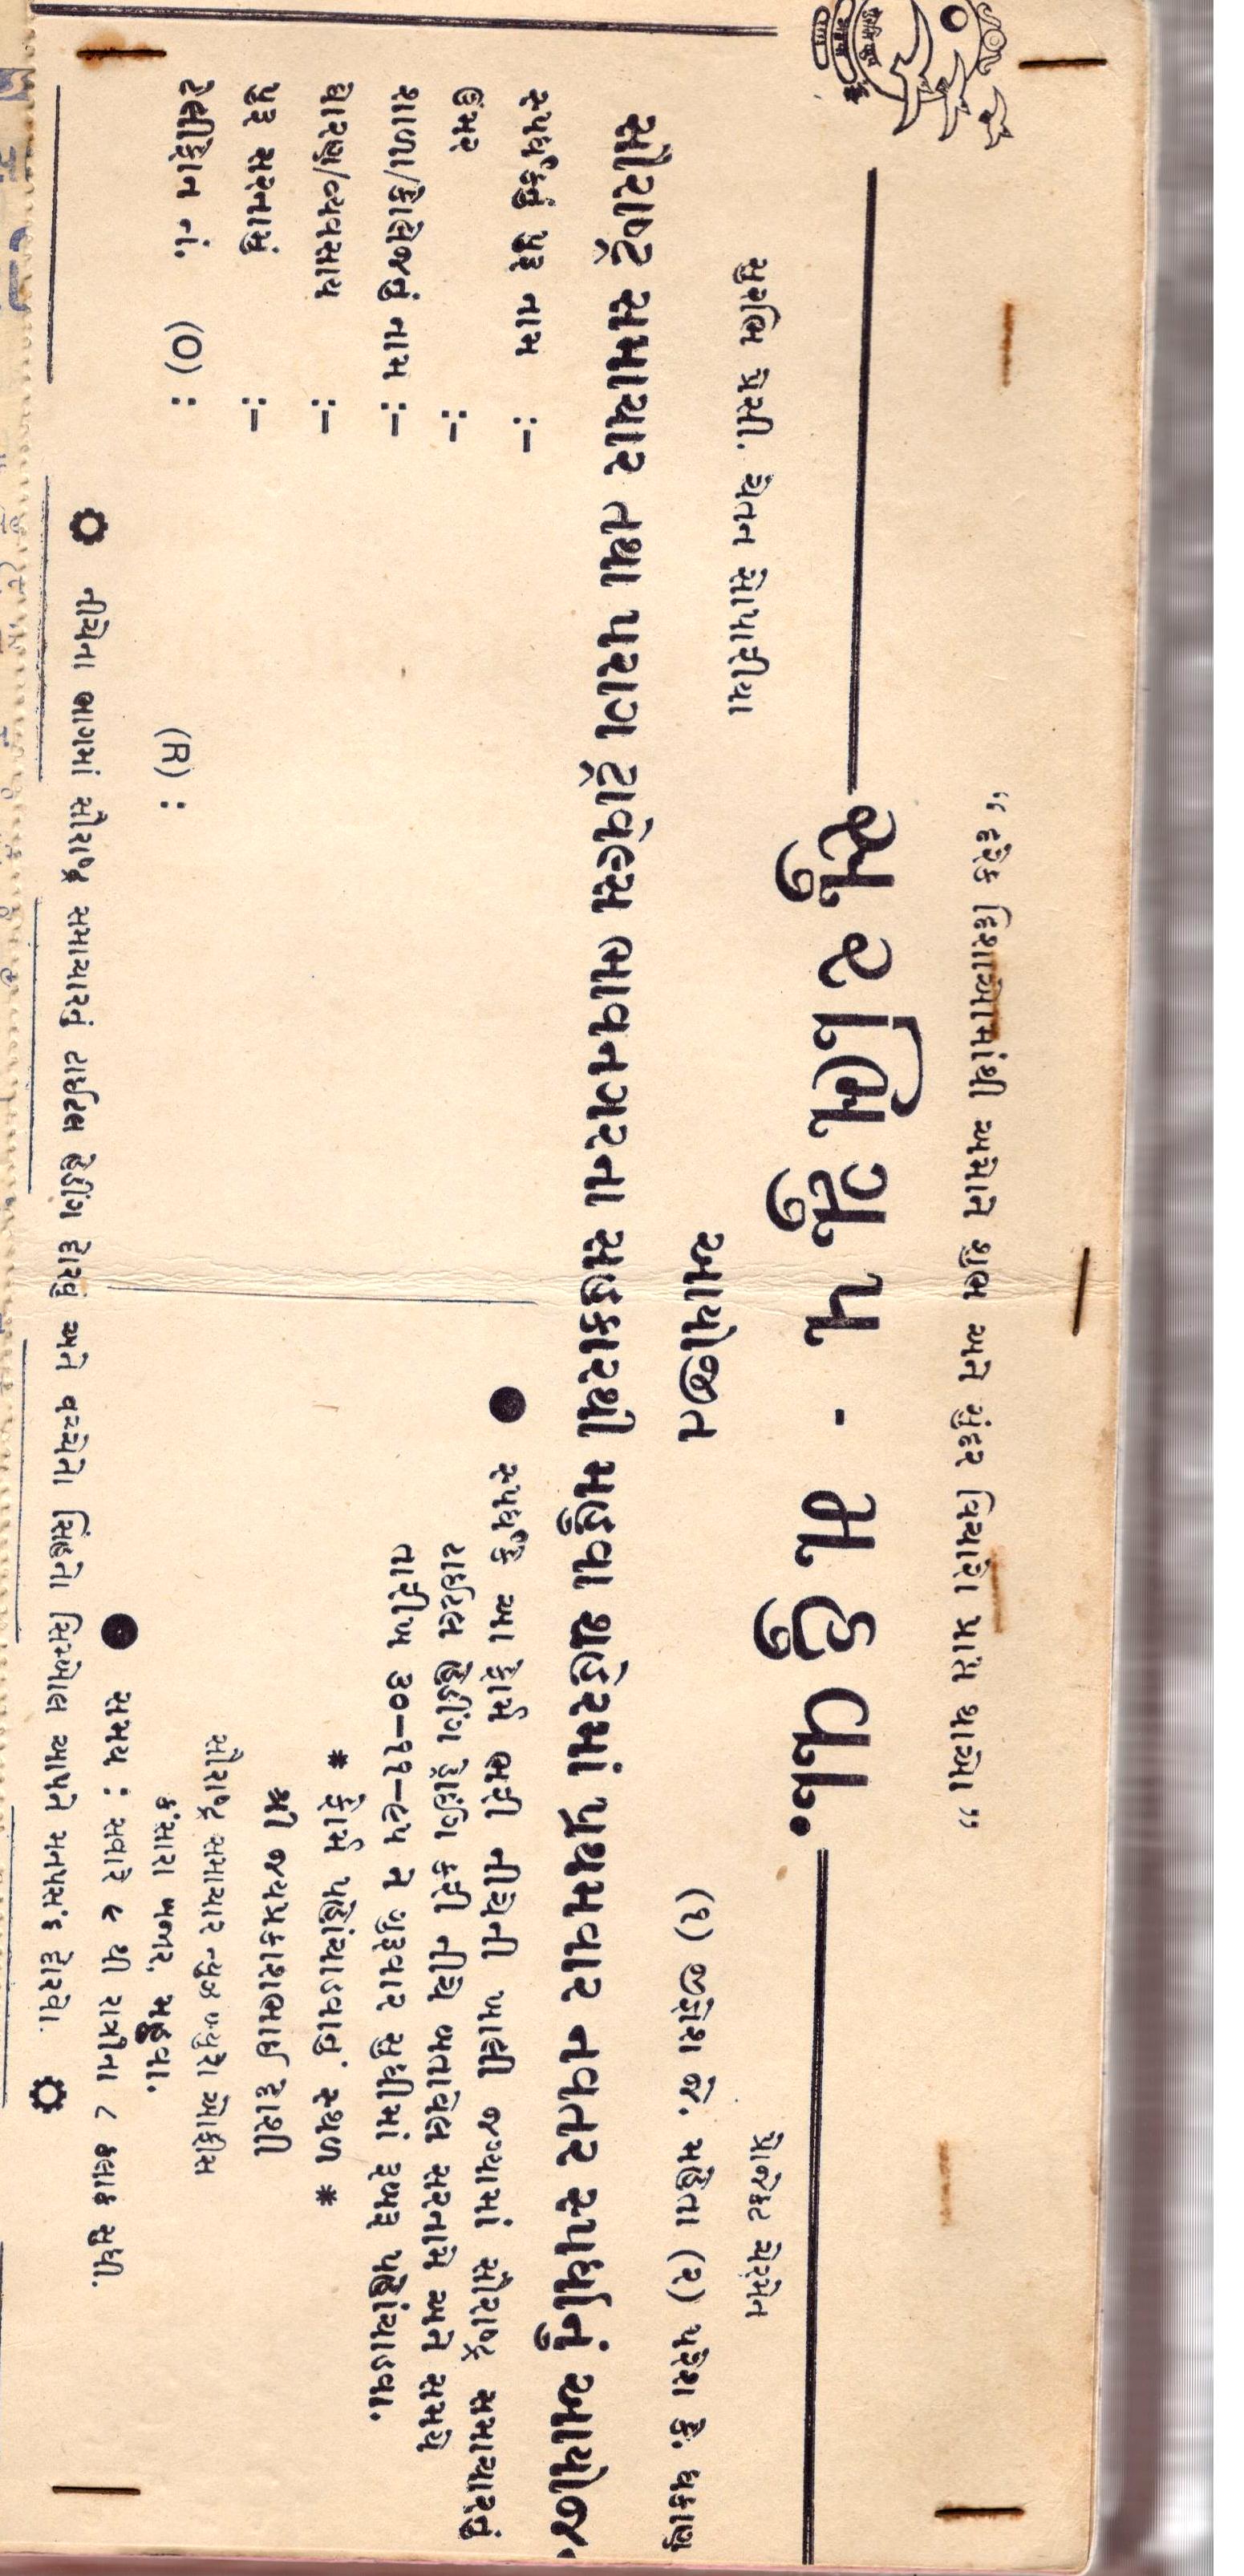 “ દરેક દિશાઓમાંથી અમોને શુભ અને સુંદર વિચારો પ્રાપ્ત થાઓ ”
સુરભિ ગ્રુપ - મહુવા.
સુરભિ પ્રેસી. ચેતન સોપારીયા
પ્રોજેક્ટ ચેરમેન
આયોજીત
(૧) જીજ્ઞેશ જે. મહેતા (૨) પરેશ કે. ધકાણ
સૌરાષ્ટ્ર સમાચાર તથા પરાગ ટ્રાવેલ્સ ભાવનગરના સહકારથી મહુવા શહેરમાં પ્રથમવાર નવતર સ્પર્ધાનું આયોજ
સ્પર્ધકનું પુરૂ નામ :-
ઉંમર :-
શાળા/કોલેજનું નામ :-
ધોરણ/વ્યવસાય :-
પુરૂ સરનામું :-
ટેલીફોન નં. (O) : (R) :
● સ્પર્ધકે આ ફોર્મ ભરી નીચેની ખાલી જગ્યામાં સૌરાષ્ટ્ર સમાચારનું
ટાઈટલ હેડીંગ ડ્રોઈંગ કરી નીચે બતાવેલ સરનામે અને સમયે
તારીખ ૩૦-૧૧-૯૫ ને ગુરૂવાર સુધીમાં રૂબરૂ પહોંચાડવા.
* ફોર્મ પહોંચાડવાનું સ્થળ *
શ્રી જયપ્રકાશભાઈ દોશી
સૌરાષ્ટ્ર સમાચાર ન્યુઝ બ્યુરો ઓફીસ
કંસારા બજાર, મહુવા.
● સમય : સવારે ૯ થી રાત્રીના ૮ કલાક સુધી.
નીચેના ભાગમાં સૌરાષ્ટ્ર સમાચારનું ટાઈટલ હેડીંગ દોરવું અને વચ્ચેનો સિંહનો સિમ્બોલ આપને મનપસંદ દોરવો.